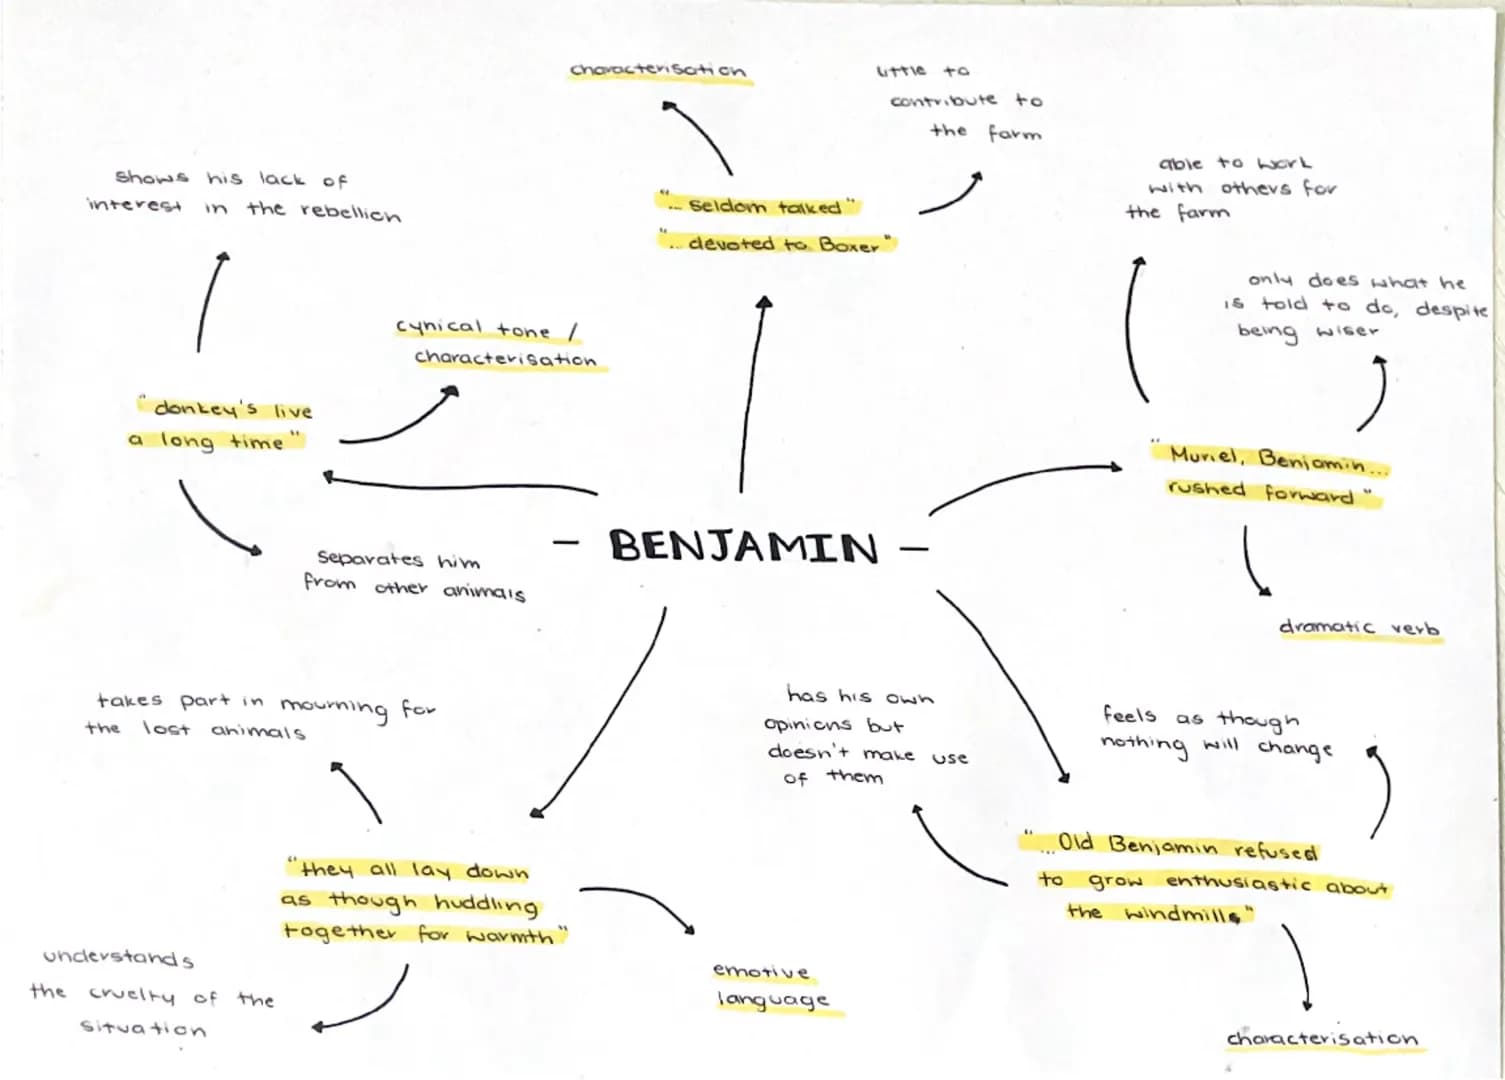 characterisation
little to
contribute to
the farm
"... seldom talked"
"... devoted to Boxer"
shows his lack of
interest in the rebellion
cynical tone /
characterisation
"donkey's live
a long time"
separates him
from other animals
able to work
with others for
the farm
only does what he
is told to do, despite
being wiser
"Muriel, Benjamin...
rushed forward"
dramatic verb
- BENJAMIN -
takes part in mourning for
the lost animals
"they all lay down
as though huddling
together for warmth"
understands
the cruelty of the
situation
emotive
language
has his own
opinions but
doesn't make use
of them
feels as though
nothing will change
"...Old Benjamin refused
to grow enthusiastic about
the windmill"
characterisation